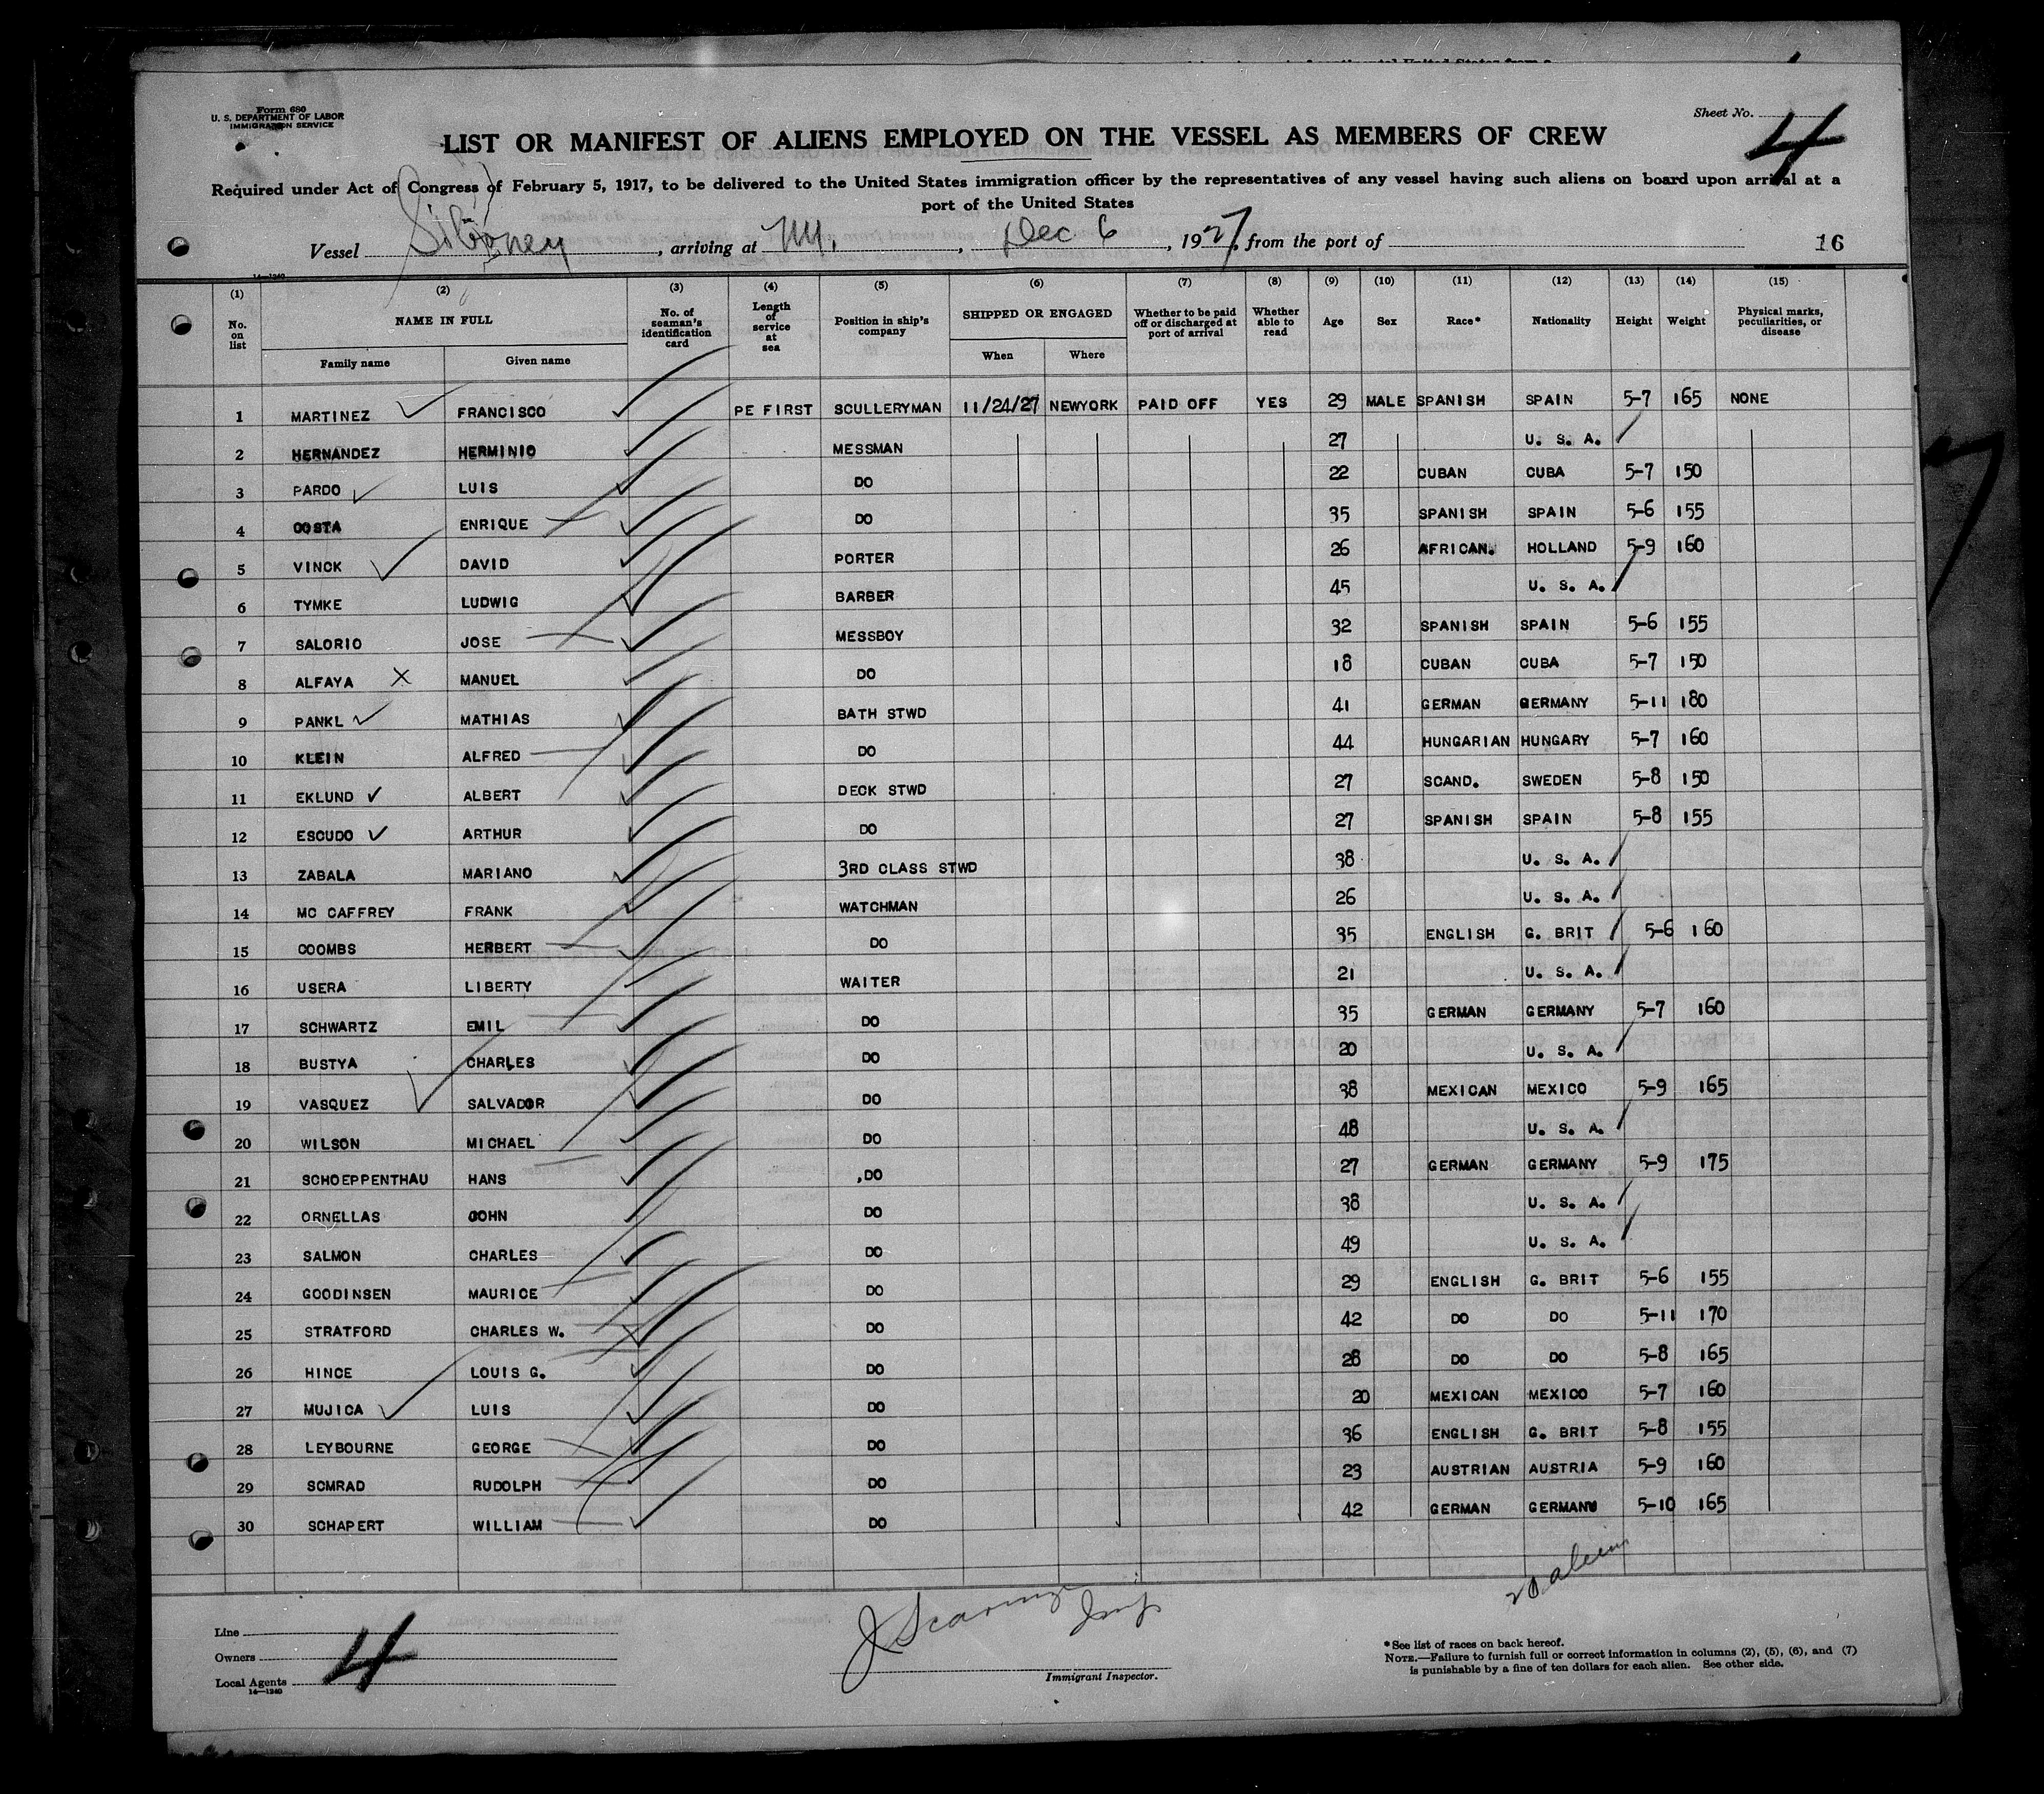 Form 680
U. S. DEPARTMENT OF LABOR
IMMIGRATION SERVICE
Sheet No. 4
LIST OR MANIFEST OF ALIENS EMPLOYED ON THE VESSEL AS MEMBERS OF CREW
Required under Act of Congress of February 5, 1917, to be delivered to the United States immigration officer by the representatives of any vessel having such aliens on board upon arrival at a
port of the United States
Vessel Siboney, arriving at N.Y., Dec 6, 1927, from the port of 16
14—1240
(1) (2) (3) (4) (5) (6) (7) (8) (9) (10) (11) (12) (13) (14) (15)
No. on list NAME IN FULL No. of seaman's identification card Length of service at sea Position in ship's company SHIPPED OR ENGAGED Whether to be paid off or discharged at port of arrival Whether able to read Age Sex Race* Nationality Height Weight Physical marks, peculiarities, or disease
Family name Given name When Where
1 MARTINEZ FRANCISCO PE FIRST SCULLERYMAN 11/24/27 NEWYORK PAID OFF YES 29 MALE SPANISH SPAIN 5-7 165 NONE
2 HERNANDEZ HERMINIO MESSMAN 27 U. S. A.
3 PARDO LUIS DO 22 CUBAN CUBA 5-7 150
4 COSTA ENRIQUE DO 35 SPANISH SPAIN 5-6 155
5 VINCK DAVID PORTER 26 AFRICAN. HOLLAND 5-9 160
6 TYMKE LUDWIG BARBER 45 U. S. A.
7 SALORIO JOSE MESSBOY 32 SPANISH SPAIN 5-6 155
8 ALFAYA X MANUEL DO 18 CUBAN CUBA 5-7 150
9 PANKL MATHIAS BATH STWD 41 GERMAN GERMANY 5-11 180
10 KLEIN ALFRED DO 44 HUNGARIAN HUNGARY 5-7 160
11 EKLUND ALBERT DECK STWD 27 SCAND. SWEDEN 5-8 150
12 ESCUDO ARTHUR DO 27 SPANISH SPAIN 5-8 155
13 ZABALA MARIANO 3RD CLASS STWD 38 U. S. A.
14 MC CAFFREY FRANK WATCHMAN 26 U. S. A.
15 COOMBS HERBERT DO 35 ENGLISH G. BRIT 5-6 160
16 USERA LIBERTY WAITER 21 U. S. A.
17 SCHWARTZ EMIL DO 35 GERMAN GERMANY 5-7 160
18 BUSTYA CHARLES DO 20 U. S. A.
19 VASQUEZ SALVADOR DO 38 MEXICAN MEXICO 5-9 165
20 WILSON MICHAEL DO 48 U. S. A.
21 SCHOEPPENTHAU HANS DO 27 GERMAN GERMANY 5-9 175
22 ORNELLAS JOHN DO 38 U. S. A.
23 SALMON CHARLES DO 49 U. S. A.
24 GOODINSEN MAURICE DO 29 ENGLISH G. BRIT 5-6 155
25 STRATFORD CHARLES W. DO 42 DO DO 5-11 170
26 HINCE LOUIS G. DO 28 DO DO 5-8 165
27 MUJICA LUIS DO 20 MEXICAN MEXICO 5-7 160
28 LEYBOURNE GEORGE DO 36 ENGLISH G. BRIT 5-8 155
29 SCMRAD RUDOLPH DO 23 AUSTRIAN AUSTRIA 5-9 160
30 SCHAPERT WILLIAM DO 42 GERMAN GERMANU 5-10 165
aliens
Line
Owners 4
Local Agents
14—1240
Immigrant Inspector.
*See list of races on back hereof.
NOTE.—Failure to furnish full or correct information in columns (2), (5), (6), and (7)
is punishable by a fine of ten dollars for each alien. See other side.